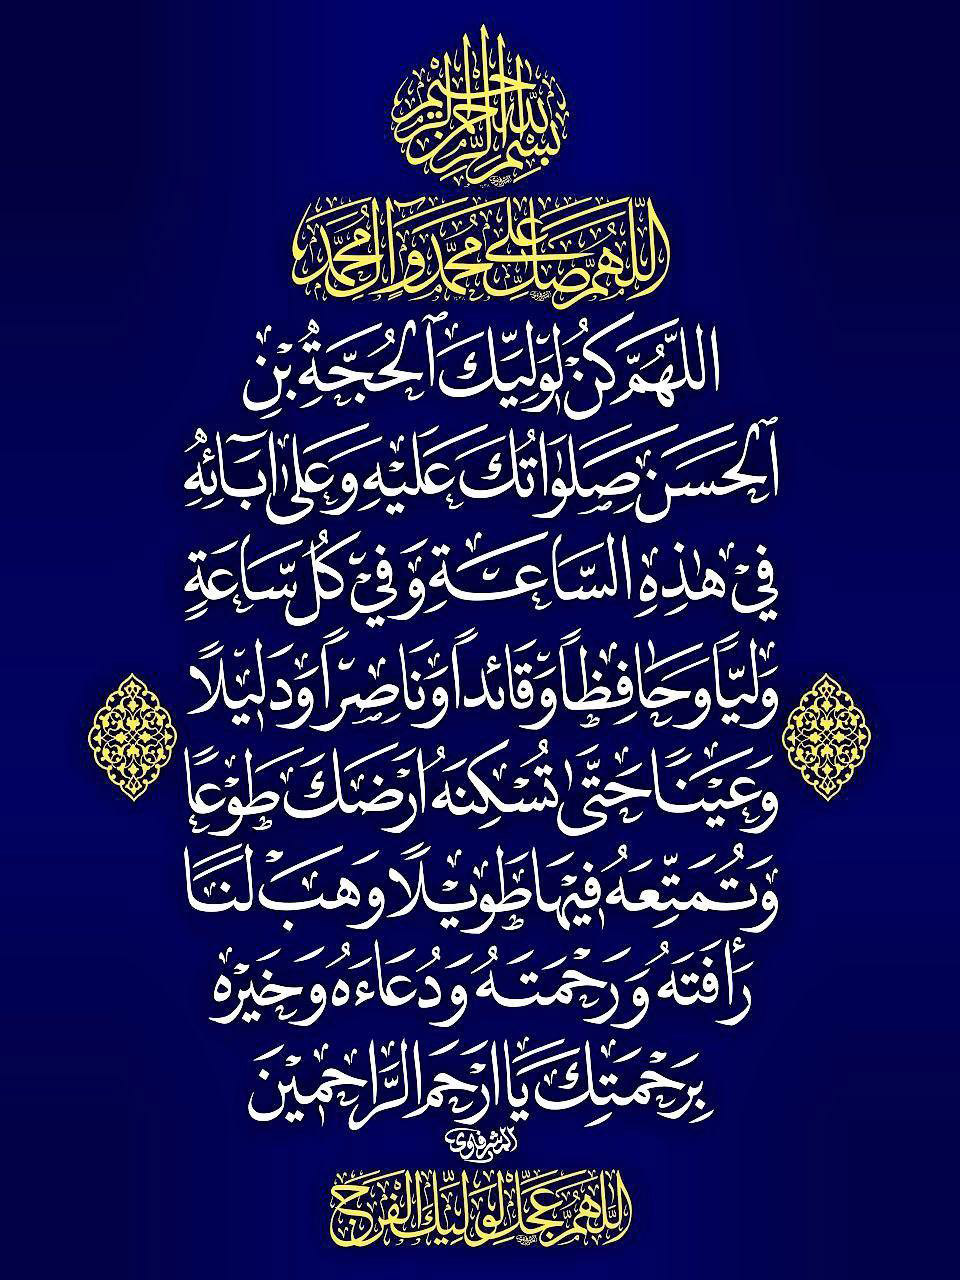 بِسْمِ اللهِ الرَّحْمٰنِ الرَّحِيمِ
اللّٰهُمَّ صَلِّ عَلَى مُحَمَّدٍ وَآلِ مُحَمَّدٍ
اللّٰهُمَّ كُنْ لِوَلِيِّكَ ٱلْحُجَّةِ بْنِ
ٱلْحَسَنِ صَلَوَاتُكَ عَلَيْهِ وَعَلىٰ آبَائِهِ
فِي هٰذِهِ السَّاعَةِ وَفِي كُلِّ سَاعَةٍ
وَلِيّاً وَحَافِظاً وَقَائداً وَنَاصِراً وَدَلِيْلًا
وَعَيْنَاً حَتَّىٰ تُسْكِنَهُ أَرْضَكَ طَوْعاً
وَتُمَتِّعَهُ فِيْهَا طَوِيْلًا وَهَبْ لَنَا
رَأفَتَهُ وَرَحْمَتَهُ وَدُعَاءَهُ وَخَيْرَه
بِرَحْمَتِكَ يَا ارَحَمَ الرَّاحِمِيْنَ
المشرفاوي
اللّٰهُمَّ عَجِّلْ لِوَلِيِّكَ الْفَرَجَ